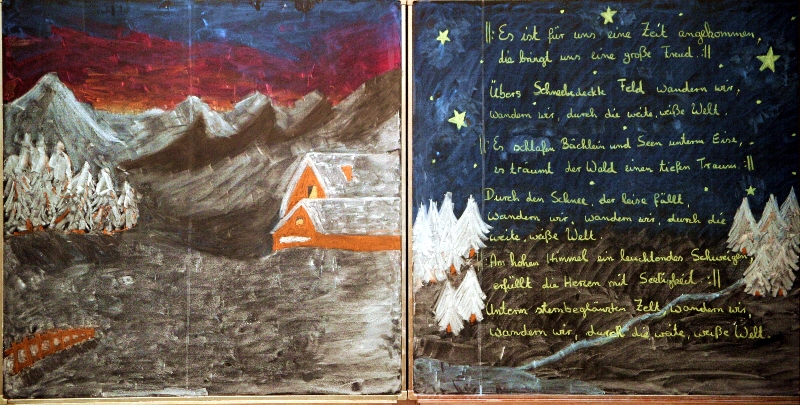 ||: Es ist für uns eine Zeit angekommen,
die bringt uns eine große Freud. :||
Übers Schneebedeckte Feld wandern wir,
wandern wir, durch die weite, weiße Welt.
||: Es schlafen Bächlein und Seen unterm Eise,
es träumt der Wald einen tiefen Traum. :||
Durch den Schnee, der leise fällt,
wandern wir, wandern wir, durch die
weite, weiße Welt.
||: Am hohen Himmel ein leuchtendes Schweigen,
erfüllt die Herzen mit Seeligkeit. :||
Unterm sternbeglänzten Zelt, wandern wir,
wandern wir, durch die weite, weiße Welt.